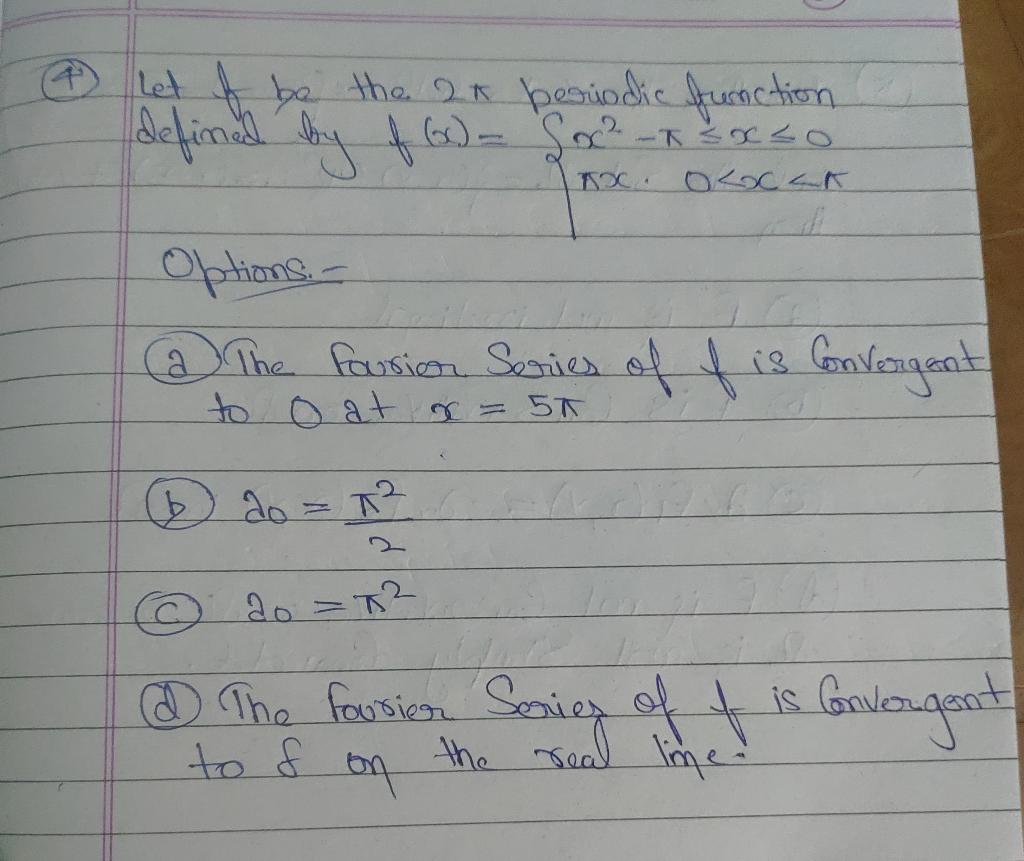 ④ Let f be the 2π periodic function
defined by f(x) = { x² -π ≤ x ≤ 0
πx. 0 < x < π
Options:-
ⓐ The Fourier Series of f is Convergent
to 0 at x = 5π
ⓑ a₀ = π²/2
ⓒ a₀ = π²
ⓓ The Fourier Series of f is Convergent
to f on the real line.